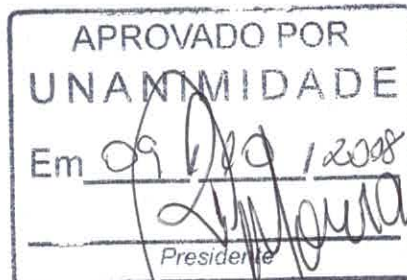 APROVADO POR
UNANIMIDADE
Em 09 Dez / 2008
Presidente